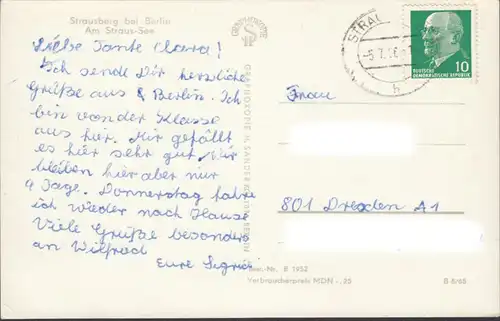 Strausberg bei Berlin
Am Straus-See
Liebe Tante Clara!
Ich sende Dir herzliche
Grüße aus Berlin. Ich
bin von der Klasse
aus hier. Mir gefällt
es hier sehr gut. Wir
bleiben hier aber nur
9 Tage. Donnerstag fahre
ich wieder nach Hause
Viele Grüße besonders
an Wilfrod
Eure Sigrid
STRAU
-5.7.
b
DEUTSCHE
DEMOKRATISCHE REPUBLIK
10
Frau
801 Dresden A1
B 1952
Verbraucherpreis MDN -,25
B 8/65